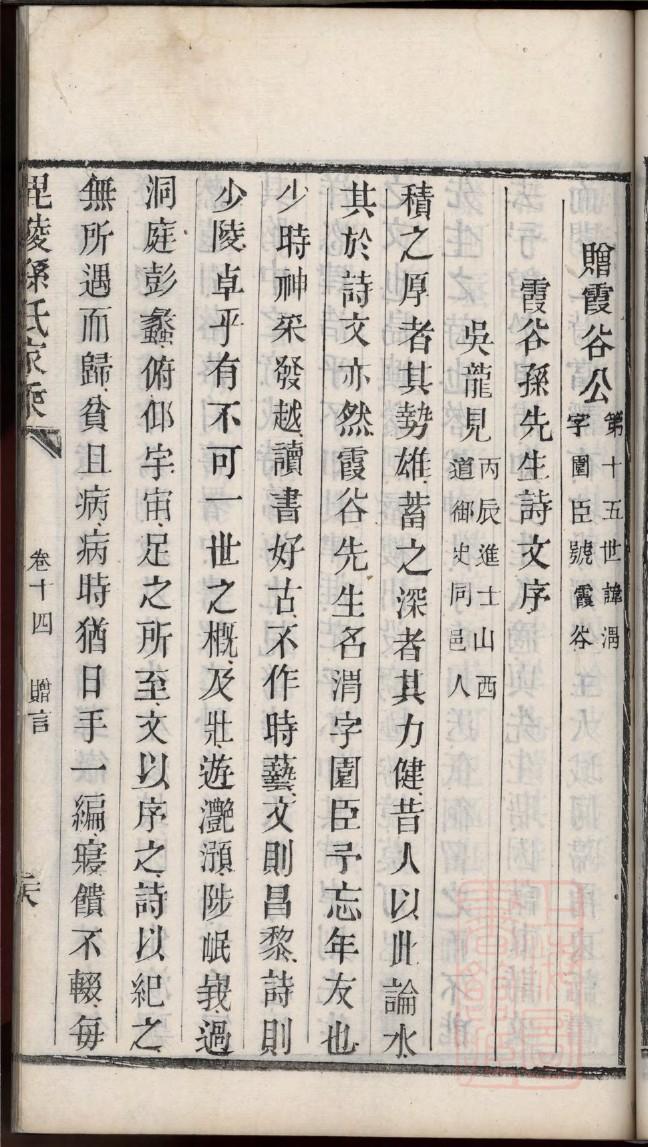 贈霞谷公 第十五世諱渭
字圍臣號霞谷
霞谷孫先生詩文序
吳龍見 丙辰進士山西
道御史同邑人
積之厚者其勢雄蓄之深者其力健昔人以此論水
其於詩文亦然霞谷先生名渭字圍臣予忘年友也
少時神采發越讀書好古不作時藝文則昌黎詩則
少陵卓乎有不可一世之槪及壯遊灔澦陟岷峩過
洞庭彭蠡俯仰宇宙足之所至文以序之詩以紀之
無所遇而歸貧且病病時猶日手一編寢饋不輟每
毘陵孫氏家乘 卷十四 贈言